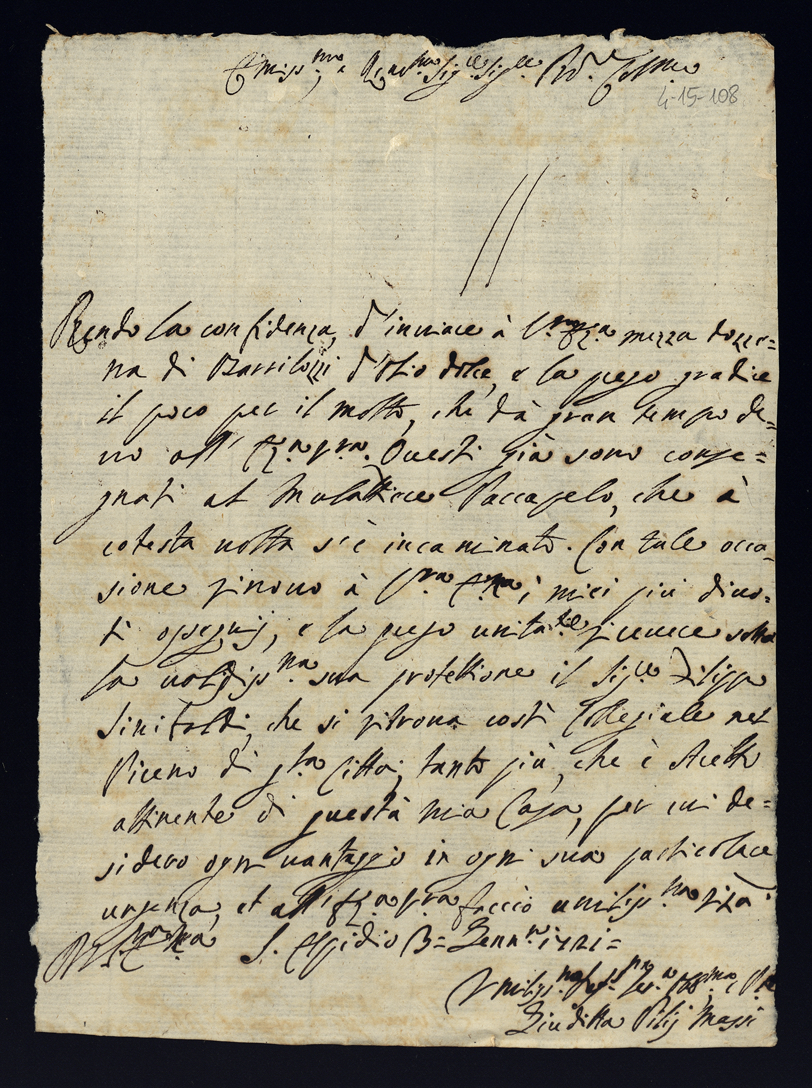 Emiss.mo e Rev.mo Sig.re Sig.re P.rōn Colmo
4-15-108
Prendo la confidenza d'inviare à V.ra Em.za mezza dozze=
na di Barrilozzi d'Olio dolce, e la prego gradire
il poco per il molto, che da gran tempo de=
vo all' Em.za V.ra. Questi già sono conse=
gnati al Mulattiere Paccapelo, che à
cotesta volta s'è incaminato. Con tale occa=
sione rinovo à V.ra Em.za i miei più divo=
ti ossequij, e la prego unita.te ricevere sotto
la validiss.ma sua protettione il Sig.re Filippo
Sinibaldi, che si ritrova costì Collegiale nel
Piceno di d.ta Città, tanto più, che è stretto
attinente di questa mia Casa, per cui de=
sidero ogni vantaggio in ogni sua particolare
urgenza, et all' Em.za V.ra faccio umiliss.ma riv.za
Di V.ra Em.za S. Elpidio 13= Genn.ro 1721=
Umiliss.ma
Giuditta Pilij Massi